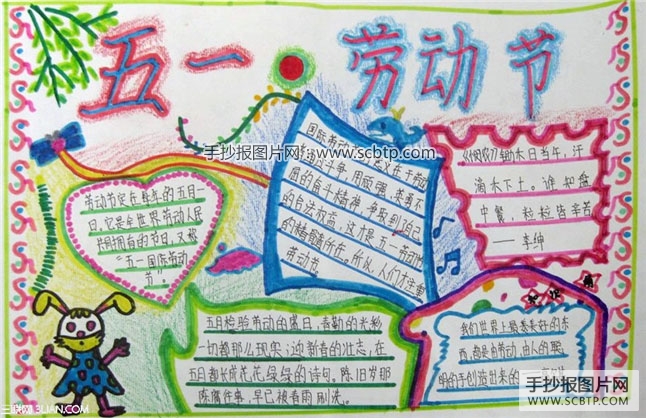 五一·劳动节
手抄报图片网：www.scbtp.com
劳动节定在每年的五月一
日。它是全世界劳动人民
共同拥有的节日，又称
“五一国际劳动
节”。
国际劳动
斗争，用顽强、英勇不
屈的奋斗精神，争取到自己
的合法权益，这才是五一劳动节
的精髓所在。所以，人们才注重
劳动节。
《悯农》锄禾日当午，汗
滴禾下土。谁知盘
中餐，粒粒皆辛苦
——李绅
五月检验劳动的盛日，春勤的光彩
一切都那么现实；迎新音的壮志，在
五月都长成花花绿绿的诗句。陈旧岁那
陈腐往事，早已被春雨刷洗。
我们世界上最美好的东
西，都是由劳动、由人的聪
明的手创造出来的
三联网 3LIAN.COM
手抄报图片网
WWW.SCBTP.COM